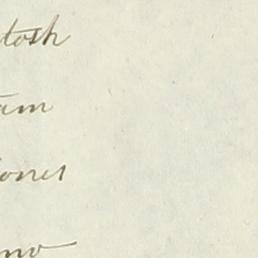 tosh
am
ones
no